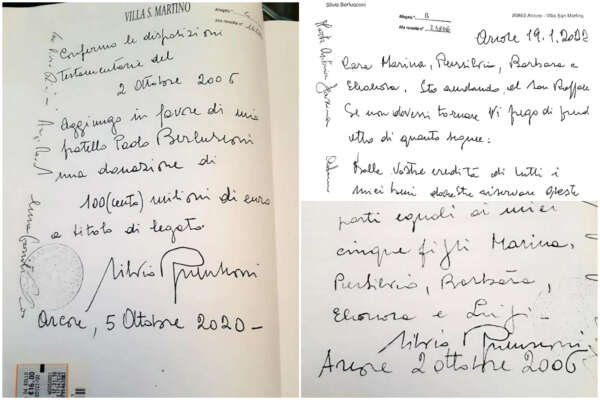 VILLA S. MARTINO
Confermo le disposizioni
testamentarie del
2 Ottobre 2006
Aggiungo in favore di mio
fratello Paolo Berlusconi
una donazione di
100 (cento) milioni di euro
a titolo di legato
Silvio Berlusconi
Arcore, 5 Ottobre 2020 -
€16,00
Silvio Berlusconi
Allegato B
20862 Arcore - Villa San Martino
Arcore 19.1.2022
Cara Marina, Piersilvio, Barbara e
Eleonora, Sto andando al San Raffaele
Se non dovessi tornare Vi prego di prend
atto di quanto segue:
Dalle vostre eredità di tutti i
miei beni dovreste riservare queste
parti eguali ai miei
cinque figli Marina,
Piersilvio, Barbara,
Eleonora e Luigi -
Silvio Berlusconi
Arcore 2 ottobre 2006